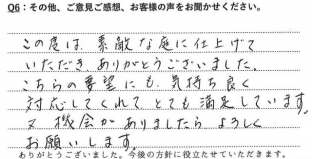 Q6：その他、ご意見ご感想、お客様の声をお聞かせください。
この度は、素敵な庭に仕上げて
いただき、ありがとうございました。
こちらの要望にも、気持ち良く
対応してくれて、とても満足しています。
又、機会がありましたら よろしく
お願いします。
ありがとうございました。今後の方針に役立たせていただきます。